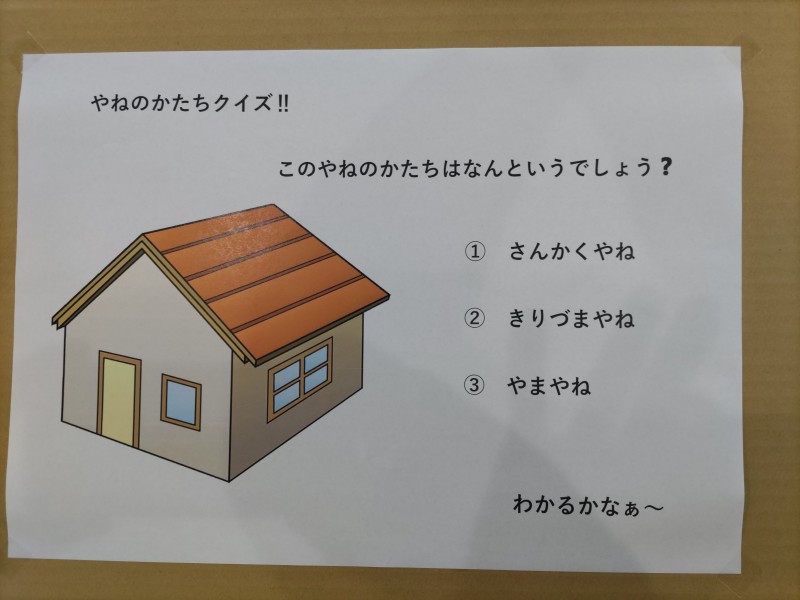 やねのかたちクイズ‼
このやねのかたちはなんというでしょう❓
① さんかくやね
② きりづまやね
③ やまやね
わかるかなぁ～